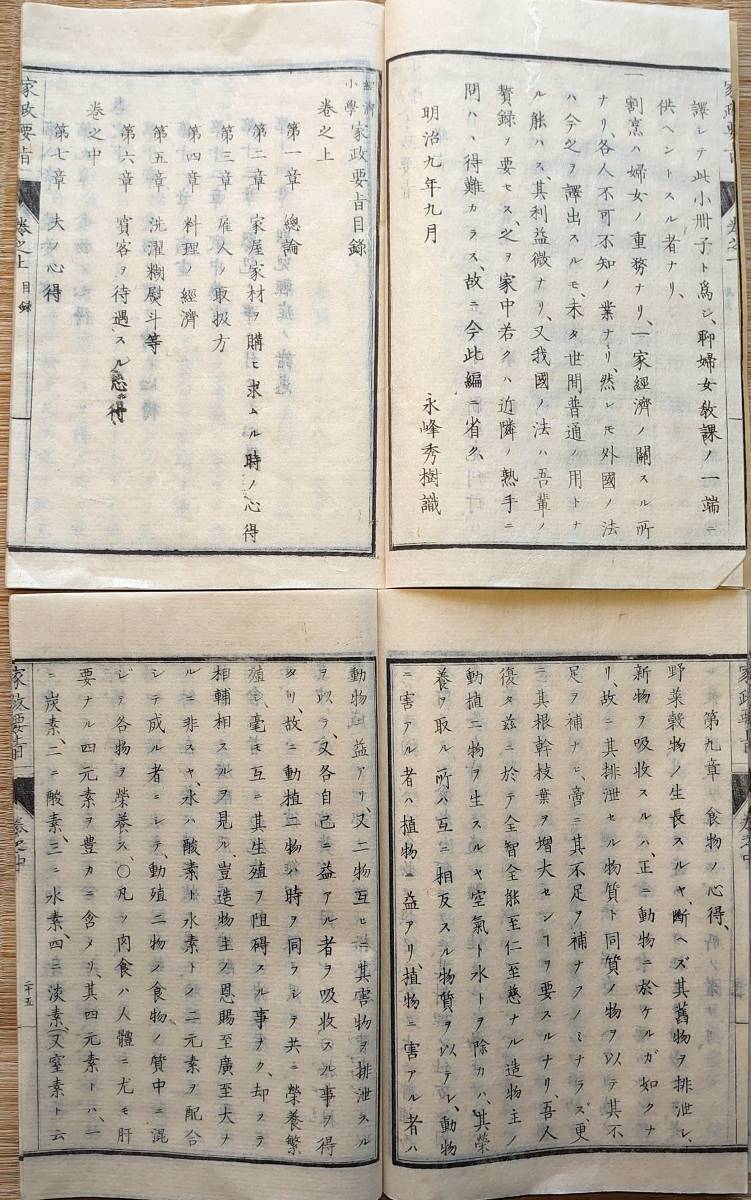 譯シテ此小冊子ト爲シ、聊婦女敎課ノ一端ニ
供ヘントスル者ナリ、
一割烹ハ婦女ノ重務ナリ、一家經濟ノ關スル所
ナリ、各人不可不知ノ業ナリ、然レモ外國ノ法
ハ今之ヲ譯出スルモ、未タ世間普通ノ用トナ
ル能ハス、其利益微ナリ、又我國ノ法ハ吾輩ノ
贅録ヲ要セス、之ヲ家中若クハ近隣ノ熟手ニ
問ハヽ得難カラス、故ニ今此編ニ省ク、
明治九年九月
永峰秀樹識
小學家政要旨目録
卷之上
第一章 總論
第二章 家屋家材ヲ購ヒ求ムル時ノ心得
第三章 雇人ノ取扱方
第四章 料理ノ經濟
第五章 洗濯糊熨斗等
第六章 賓客ヲ待遇スル心得
卷之中
第七章 夫ノ心得
家政要旨 卷之上 目録
第九章 食物ノ心得、
野菜穀物ノ生長スルヤ、斷ヘズ其舊物ヲ排泄シ、
新物ヲ吸收スルハ、正ニ動物ニ於ケルガ如クナ
リ、故ニ其排泄セル物質ト同質ノ物ヲ以テ其不
足ヲ補ナヒ、啻ニ其不足ヲ補ナフノミナラズ、更
ニ其根幹枝葉ヲ增大セシヿヲ要スルナリ、吾人
復タ茲ニ於テ全智全能至仁至慈ナル造物主ノ
動植二物ヲ生スルヤ空氣ト水トヲ除カハ、其榮
養ヲ取ル所ハ互ニ相反スル物質ヲ以テシ、動物
ニ害アル者ハ植物ニ益アリ、植物ニ害アル者ハ
動物ニ益アリ、又二物互ヒニ其害物ヲ排泄スル
ヲ以テ、又各自己ニ益アル者ヲ吸收スル事ヲ得
タリ、故ニ動植二物ハ時ヲ同フシテ共ニ榮養繁
殖シ、毫モ互ニ其生殖ヲ阻碍スル事ナク、却ヲテ
相輔相スルヲ見ル、豈造物主ノ恩賜至廣至大ナ
ルニ非スヤ、水ハ酸素ト水素トノ二元素ヲ配合
シテ成ル者ニシテ、動殖二物ノ食物ノ質中ニ混
シテ各物ヲ榮養ス、〇凡ソ肉食ハ人體ニ尤モ肝
要ナル四元素ヲ豊カニ含メリ、其四元素トハ、一
ニ炭素、二ニ酸素、三ニ水素、四ニ淡素、又窒素ト云
家政要旨 卷之中 二十五